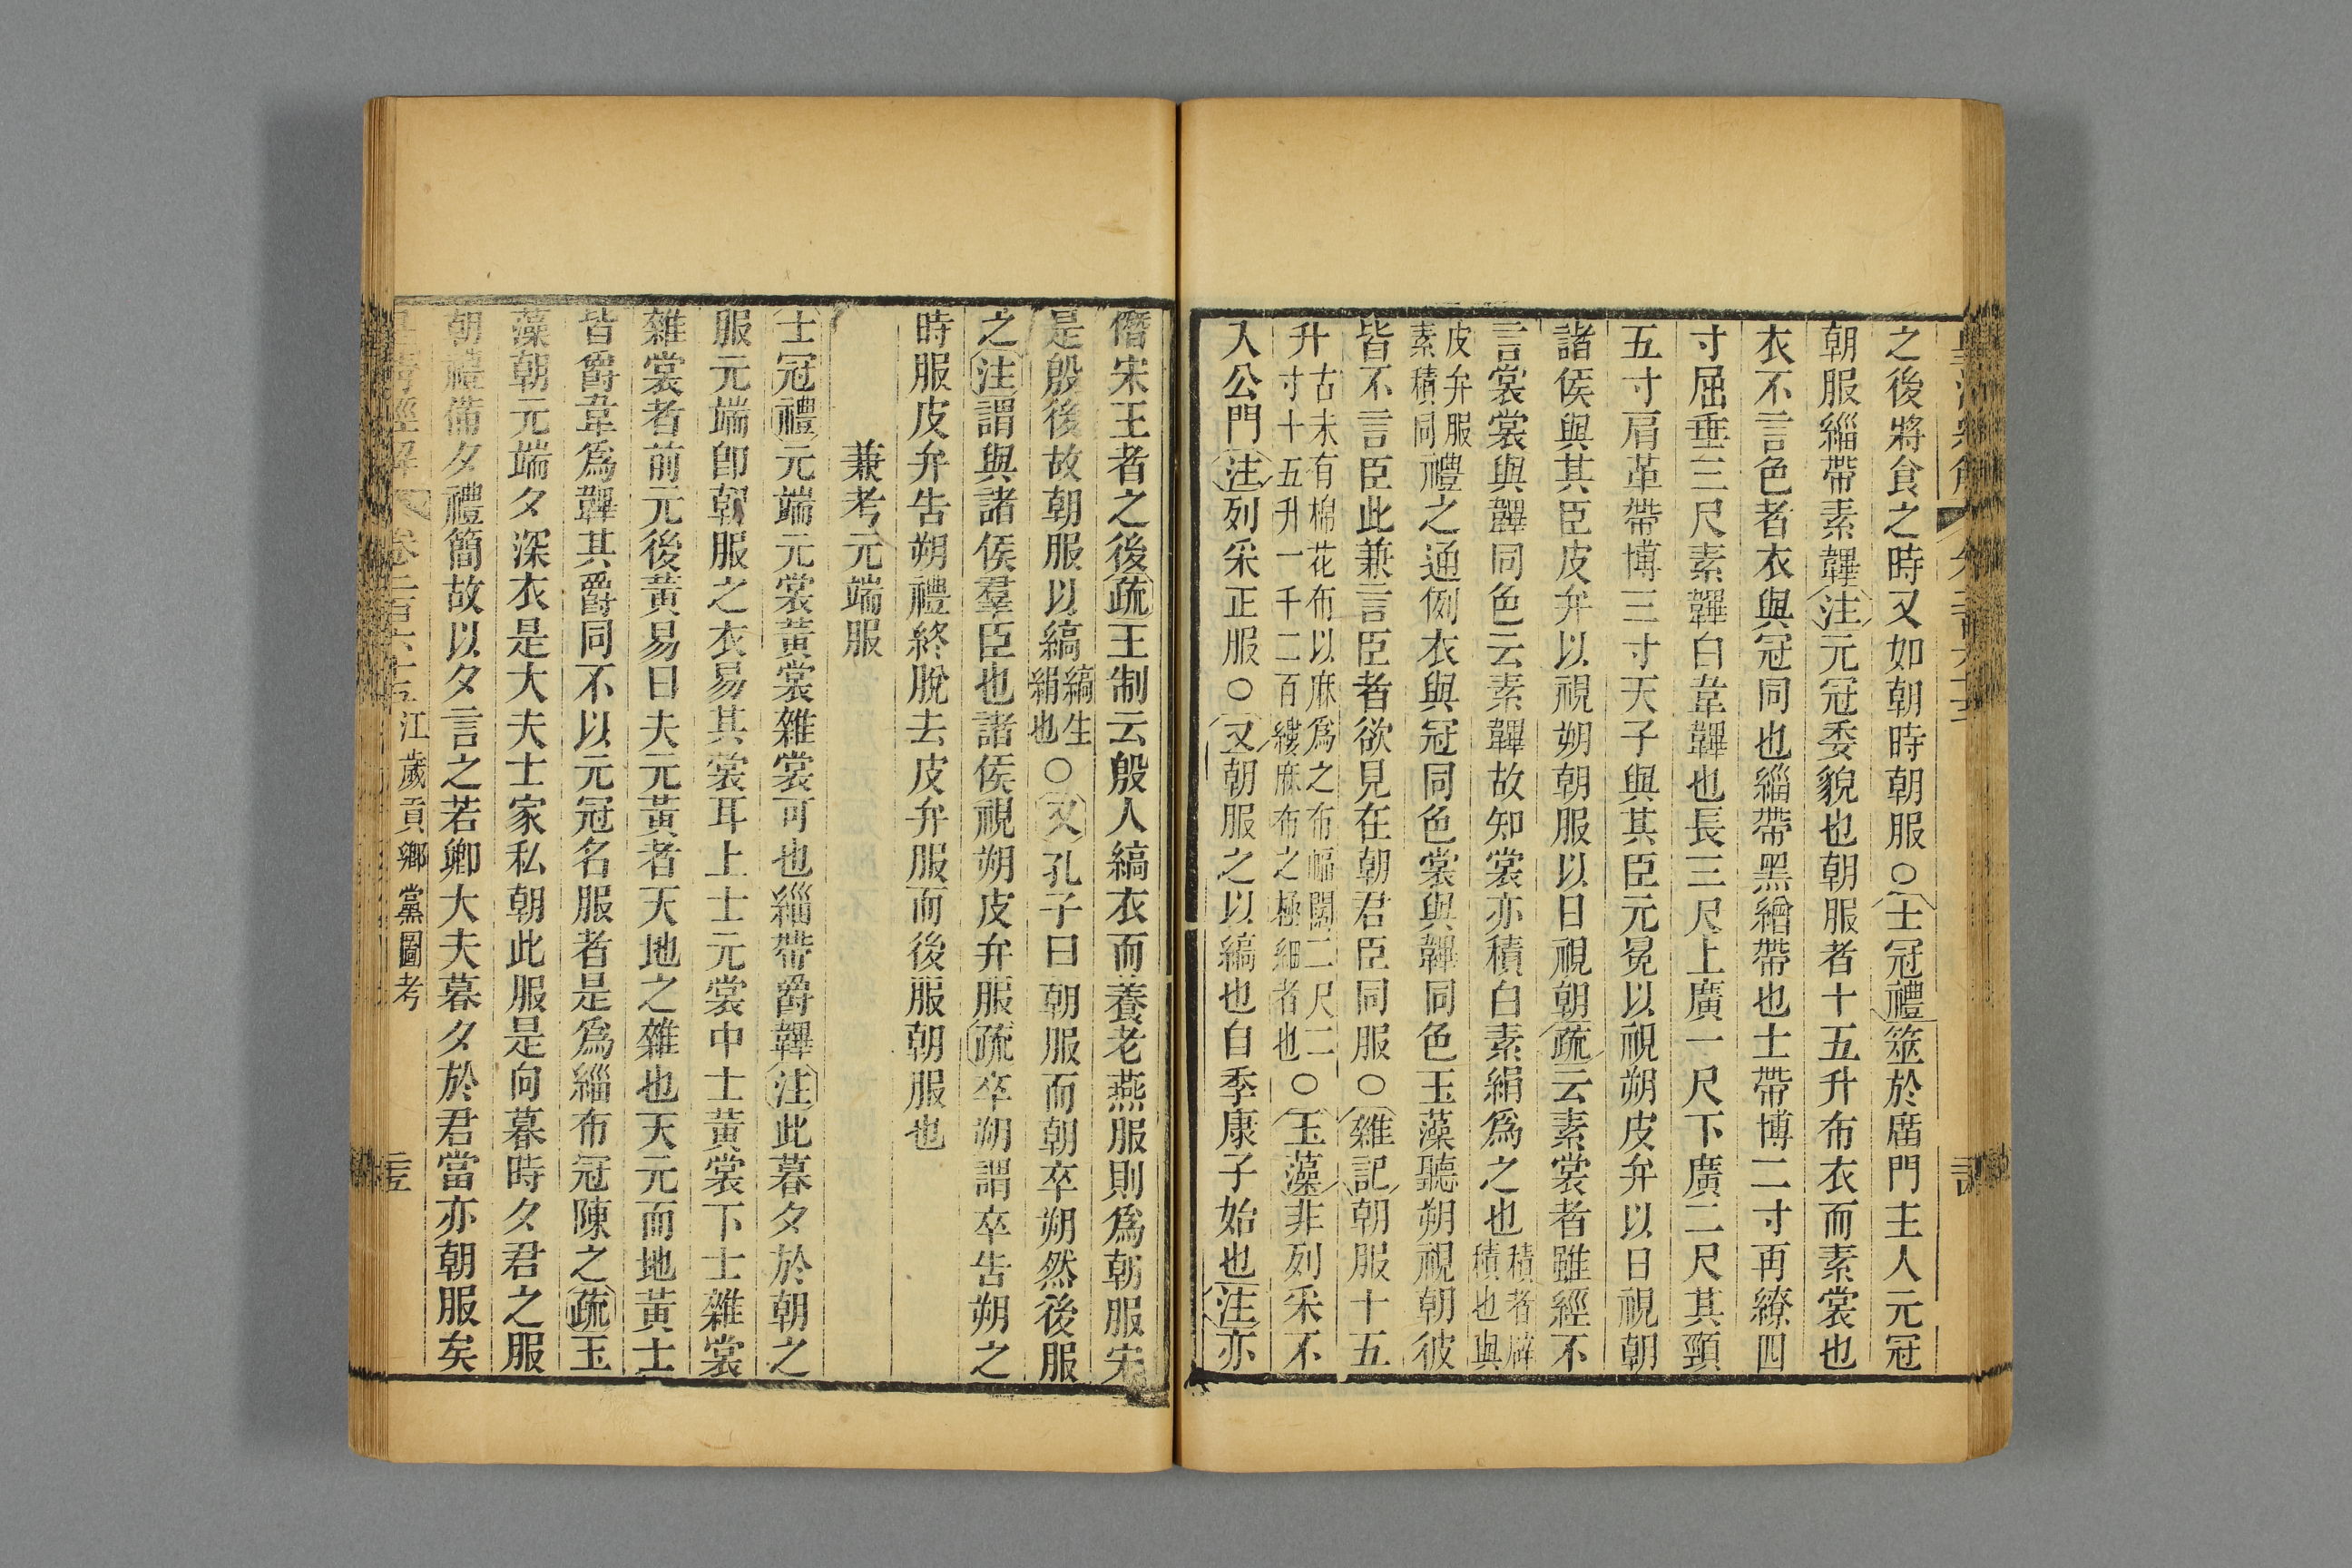 之後將食之時又如朝時朝服○士冠禮筮於庿門主人元冠
朝服緇帶素韠注元冠委貌也朝服者十五升布衣而素裳也
衣不言色者衣與冠同也緇帶黑繒帶也士帶博二寸再繚四
寸屈垂三尺素韠白韋韠也長三尺上廣一尺下廣二尺其頸
五寸肩革帶博三寸天子與其臣元冕以視朔皮弁以日視朝
諸侯與其臣皮弁以視朔朝服以日視朝疏云素裳者雖經不
言裳裳與韠同色云素韠故知裳亦積白素絹爲之也積者辟積也與
皮弁服素積同禮之通例衣與冠同色裳與韠同色玉藻聽朔視朝彼
皆不言臣此兼言臣者欲見在朝君臣同服○雜記朝服十五
升古未有棉花布以麻爲之布幅闊二尺二寸十五升一千二百縷麻布之極細者也○玉藻非列采不
入公門注列采正服○又朝服之以縞也自季康子始也注亦
僭宋王者之後疏王制云殷人縞衣而養老燕服則爲朝服宋
是殷後故朝服以縞縞生絹也○又孔子曰朝服而朝卒朔然後服
之注謂與諸侯羣臣也諸侯視朔皮弁服疏卒朔謂卒告朔之
時服皮弁告朔禮終脫去皮弁服而後服朝服也
兼考元端服
士冠禮元端元裳黃裳雜裳可也緇帶爵韠注此暮夕於朝之
服元端卽朝服之衣易其裳耳上士元裳中士黃裳下士雜裳
雜裳者前元後黃易曰夫元黃者天地之雜也天元而地黃士
皆爵韋爲韠其爵同不以元冠名服者是爲緇布冠陳之疏玉
藻朝元端夕深衣是大夫士家私朝此服是向暮時夕君之服
朝禮備夕禮簡故以夕言之若卿大夫暮夕於君當亦朝服矣
卷二百六十五 江歲貢鄉黨圖考